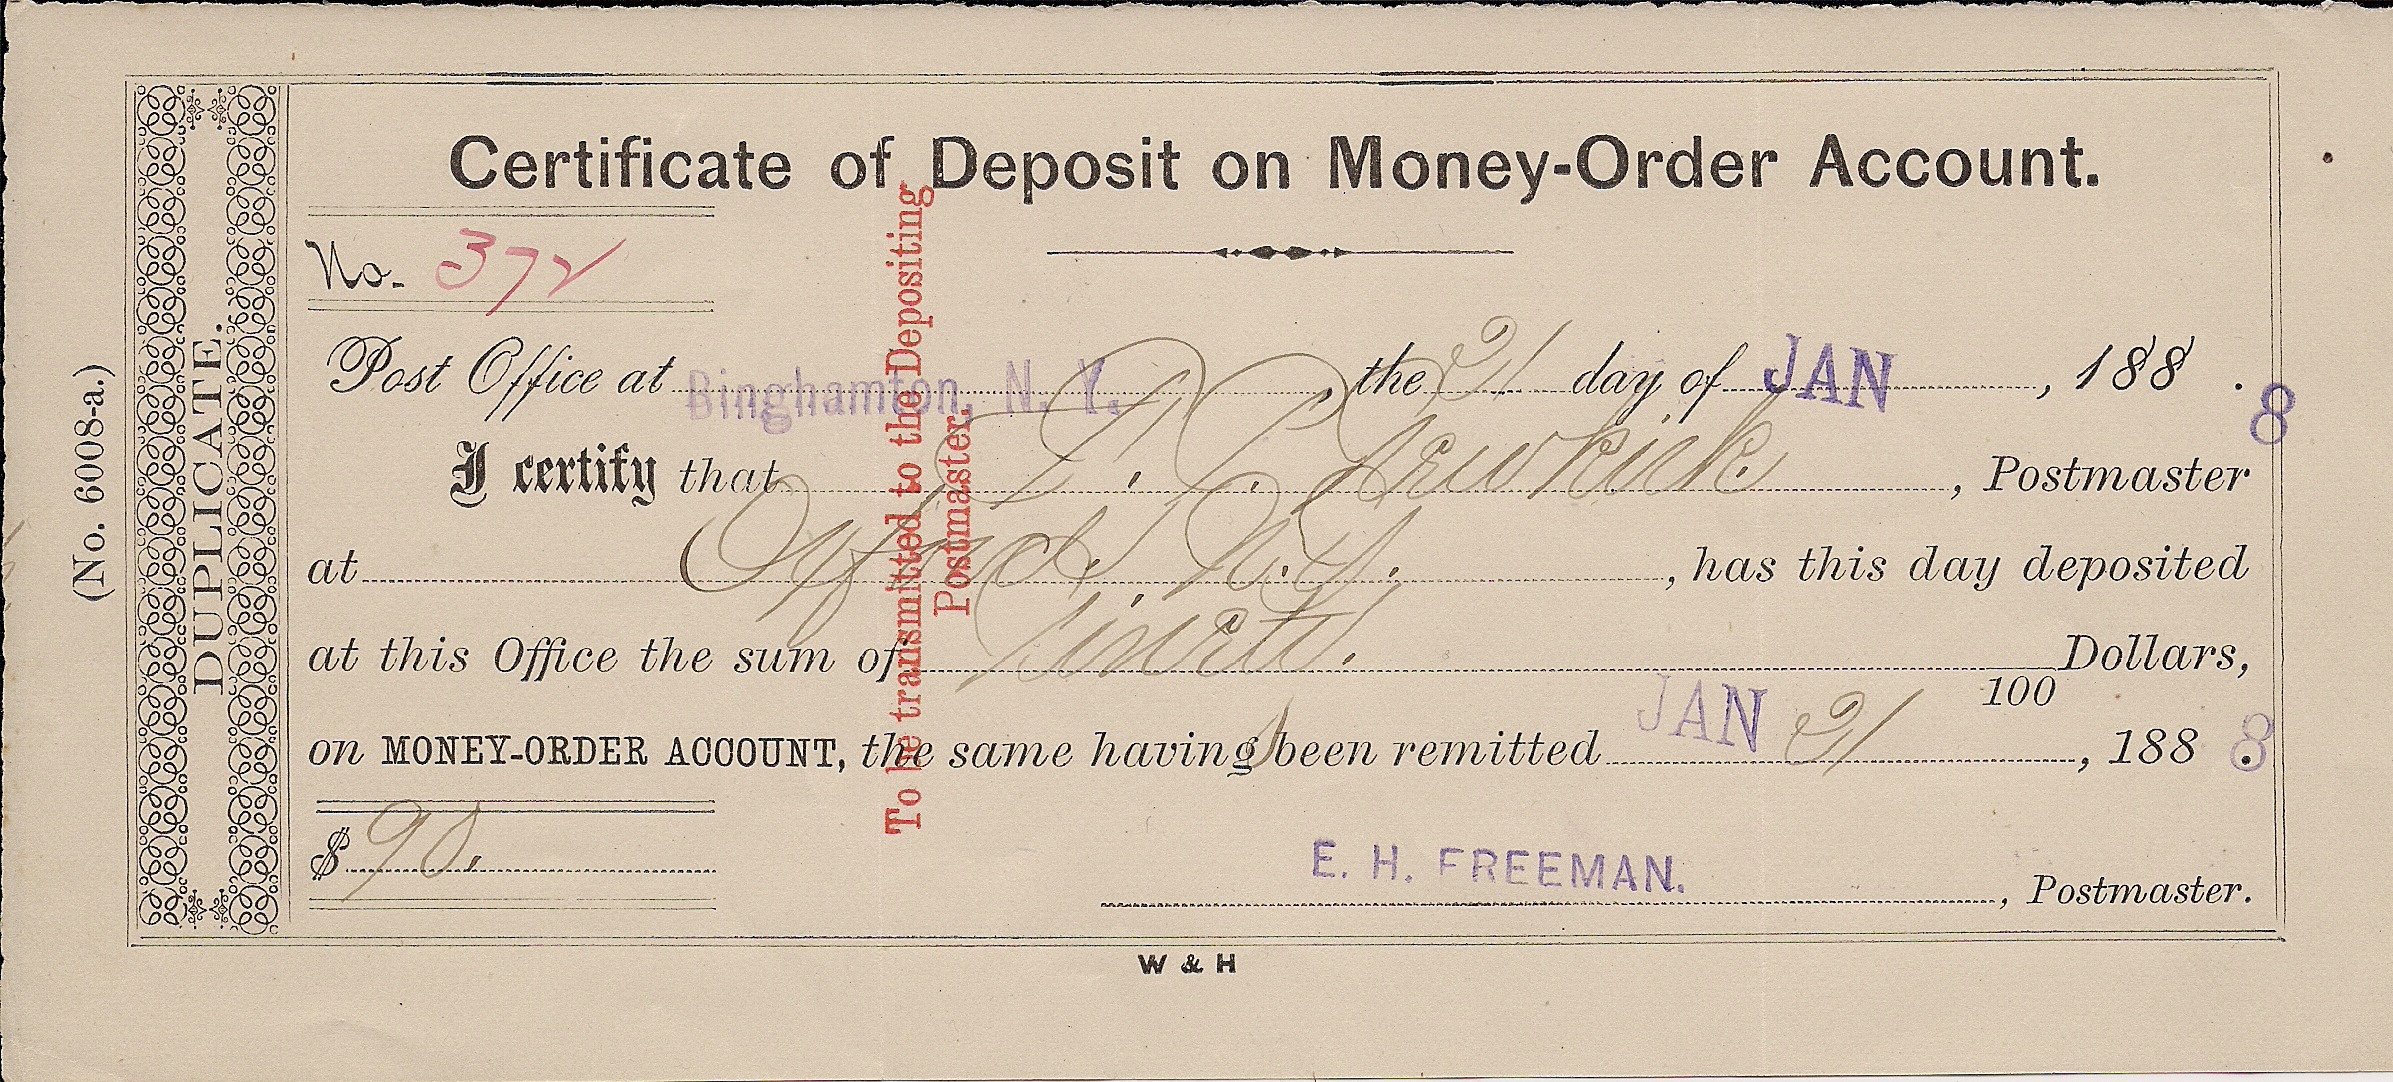 Certificate of Deposit on Money-Order Account.
No. 372
Post Office at Binghamton, N. Y., the 21 day of JAN, 1888.
I certify that Newkirk, Postmaster
at Oxford, N.Y., has this day deposited
at this Office the sum of Ninety. /100 Dollars,
on MONEY-ORDER ACCOUNT, the same having been remitted JAN 21, 1888.
$ 90.
E. H. FREEMAN.
, Postmaster.
W & H
(No. 6008-a.)
DUPLICATE.
To be transmitted to the Depositing
Postmaster.